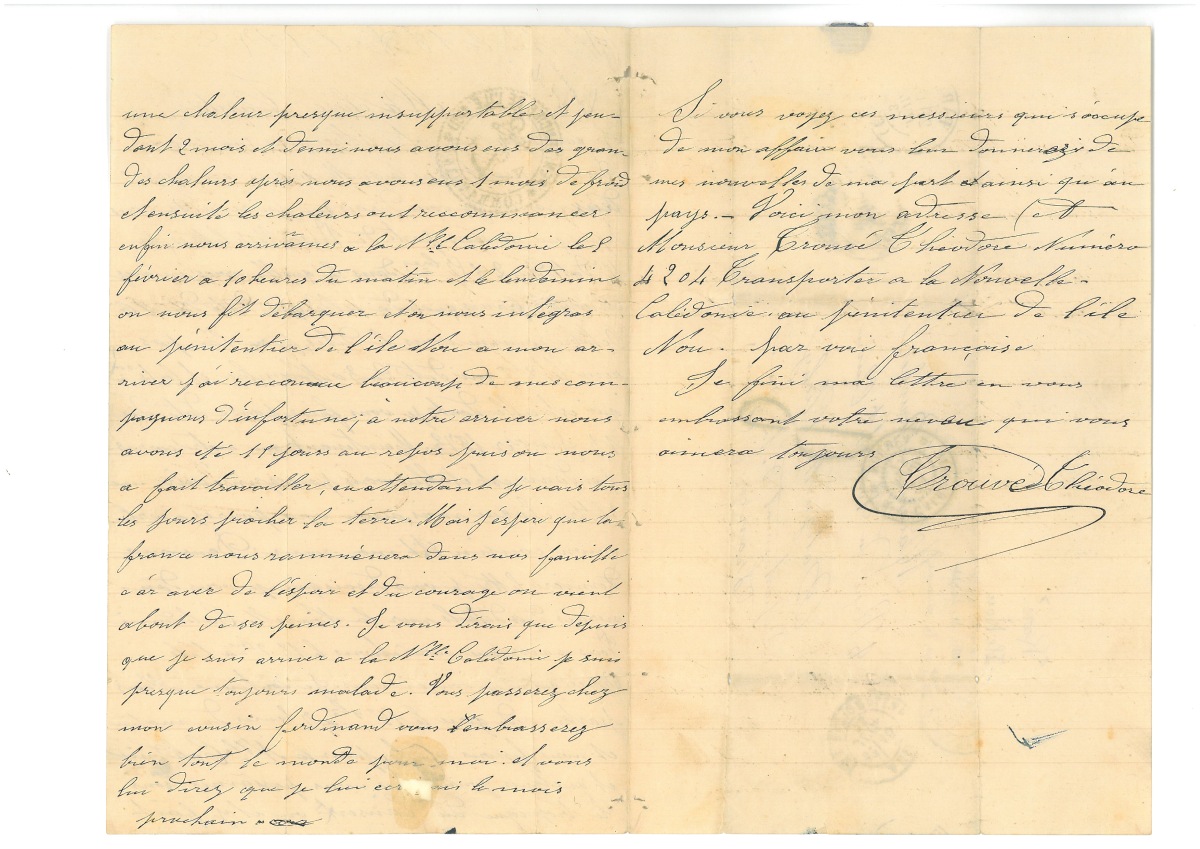 une chaleur presque insupportable et pen-
dant 2 mois et demi nous avons eus des gran-
des chaleurs après nous avons eus 1 mois de froid
et ensuite les chaleurs ont reccommancer
enfin nous arrivâmes a la Nlle Calédonie le
février a 10 heures du matin et le lendemin
on nous fit débarquer et on nous intégras
au pénitentier de l'île Nou a mon ar-
river j'ai reconnue beaucoup de mes com-
pagnons d'infortune; à notre arriver nous
avons été 15 jours au repos puis on nous
a fait travailler, en attendant je vais tous
les jours piocher la terre. Mais j'espère que la
france nous ramménera dans nos famille
càr avec de l'éspoir et du courage on vient
about de ses peines. Je vous dirais que depuis
que je suis arriver a la Nlle Calédonie je suis
presque toujours malade. Vous passerez chez
mon cousin ferdinand vous l'embrasserez
bien tout le monde pour moi. et vous
lui direz que je lui le mois
prochain
Si vous voyez ces messieurs qui s'occupe
de mon affaire vous leur donnerez de
mes nouvelles de ma part et ainsi qu'au
pays. - Voici mon adresse (et
Monsieur Trouvé Théodore Numéro
4204 Transporter a la Nouvelle-
Calédonie. au pénitentier de l'île
Nou. par voie française
Je fini ma lettre en vous
embrassant votre neveu qui vous
aimera toujours
Trouvé Théodore